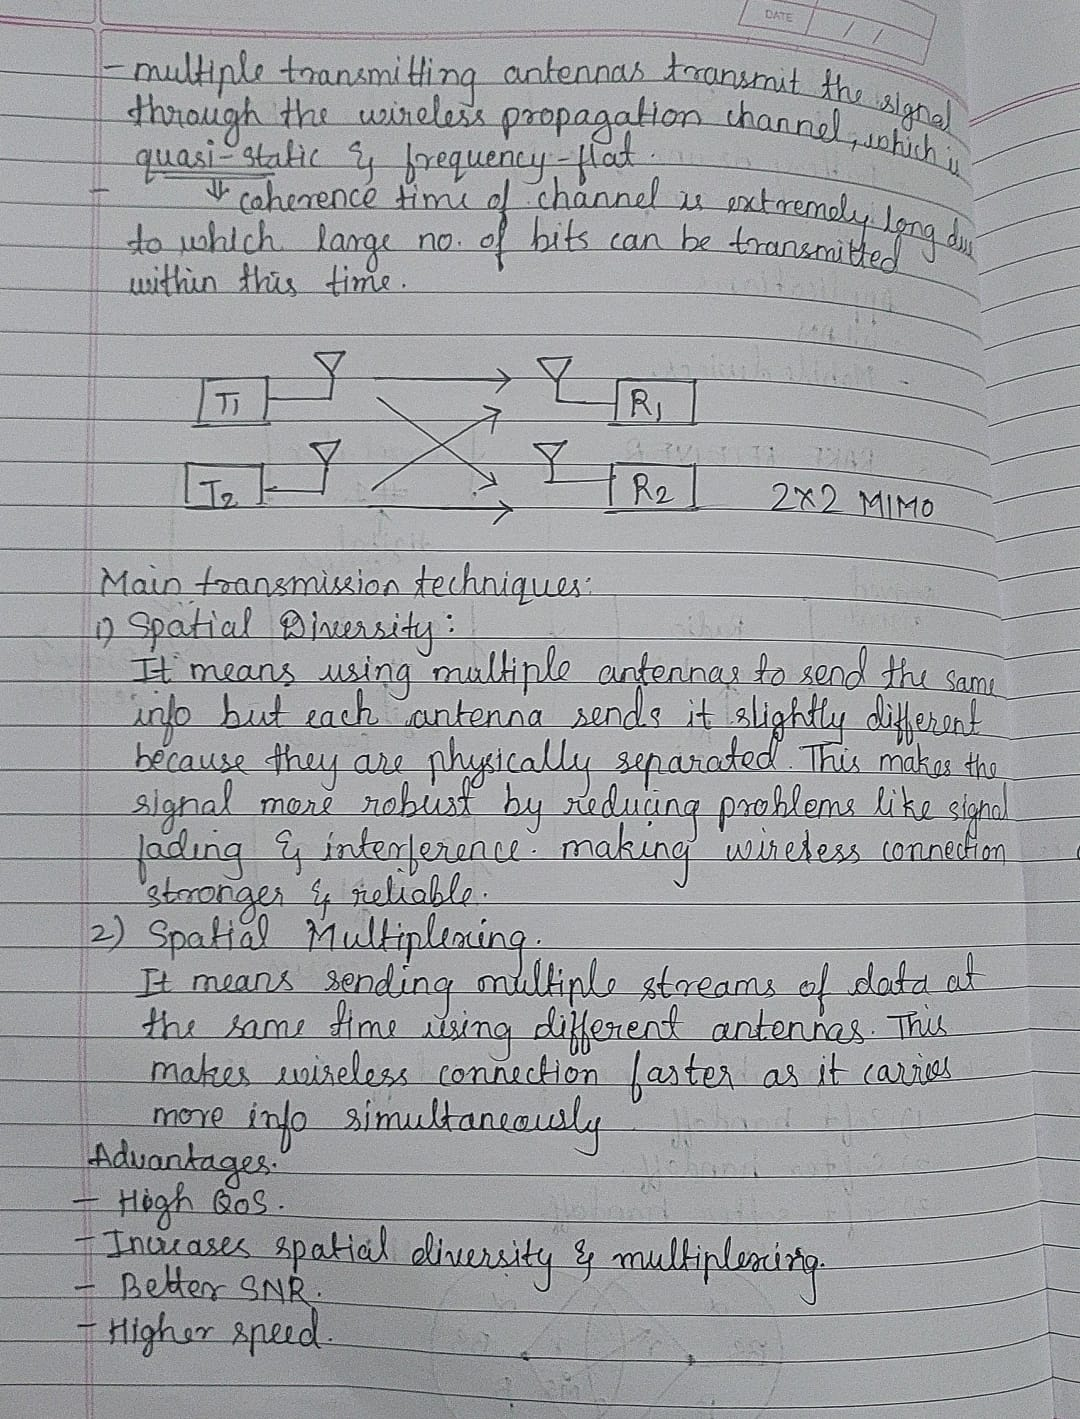 DATE / /
- multiple transmitting antennas transmit the signal
through the wireless propagation channel, which is
quasi-static & frequency-flat.
- ⇓ coherence time of channel is extremely long due
to which large no. of bits can be transmitted
within this time.
T1 R1
T2 R2 2x2 MIMO
Main transmission techniques:
1) Spatial Diversity:
It means using multiple antennas to send the same
info but each antenna sends it slightly different
because they are physically separated. This makes the
signal more robust by reducing problems like signal
fading & interference. making wireless connection
stronger & reliable.
2) Spatial Multiplexing.
It means sending multiple streams of data at
the same time using different antennas. This
makes wireless connection faster as it carries
more info simultaneously
Advantages:
- High QoS.
- Increases spatial diversity & multiplexing.
- Better SNR.
- Higher speed.